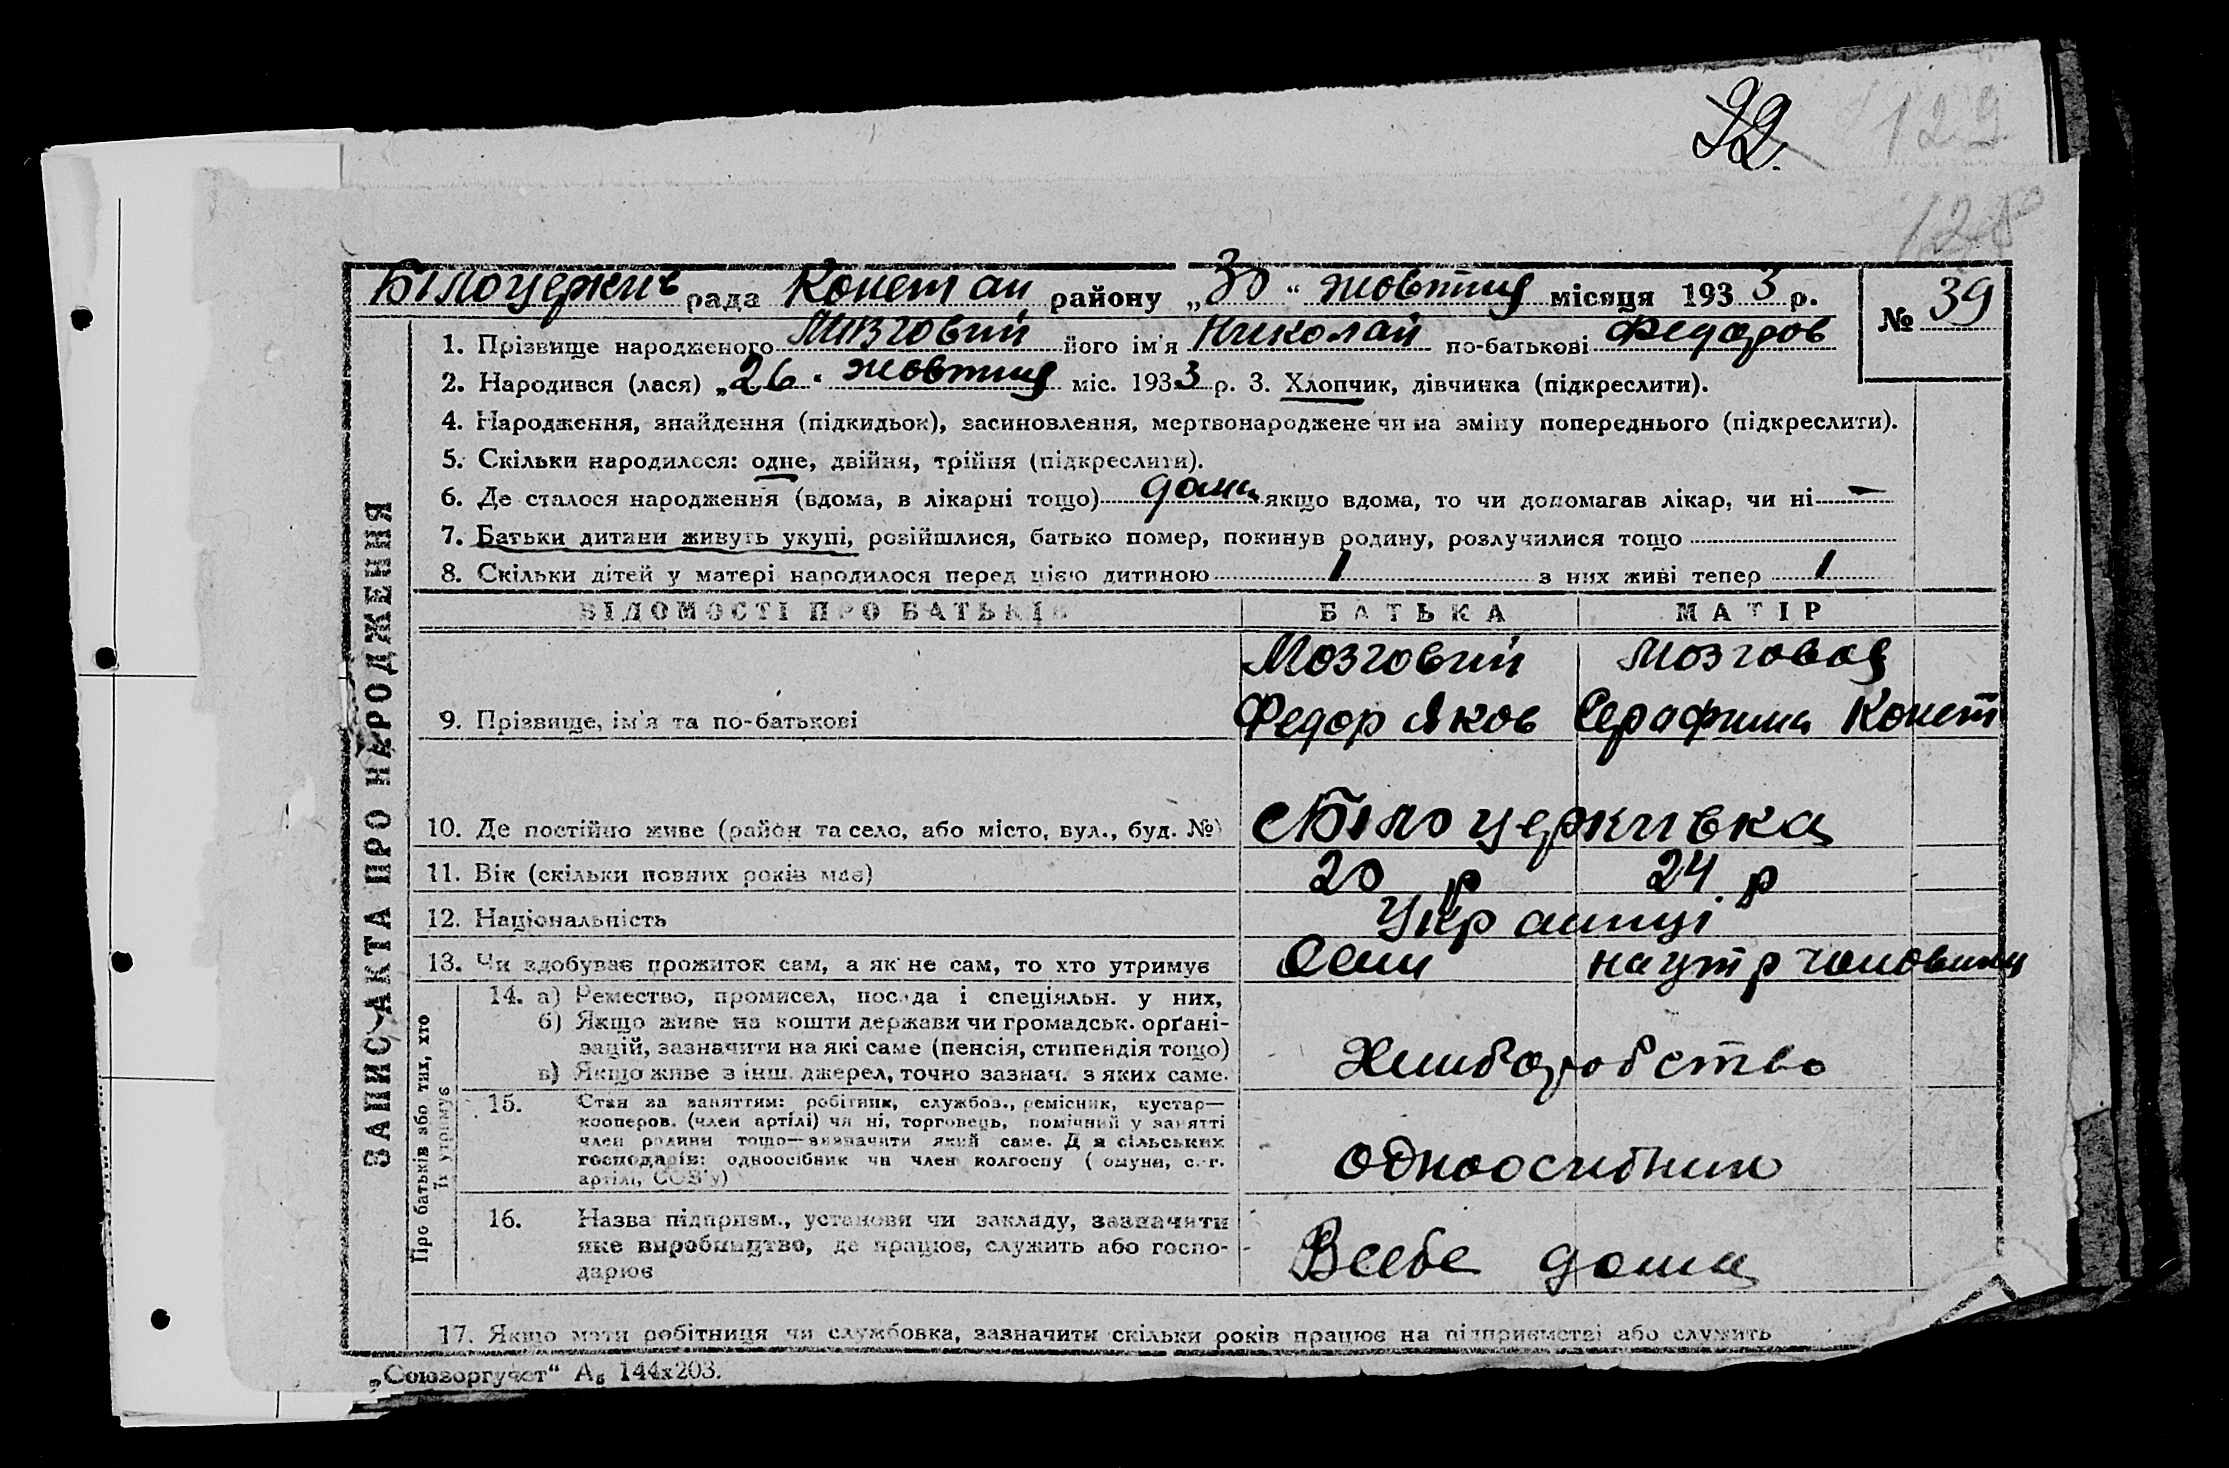 92.
129
128
Білоцеркив рада Констан району „30“ жовтня місяця 1933 р.
№ 39
1. Прізвище народженого Мозговий його ім'я Николай по-батькові Федоров
2. Народився (лася) „26“ жовтня міс. 1933 р. 3. Хлопчик, дівчинка (підкреслити).
4. Народження, знайдення (підкидьок), засиновлення, мертвонароджене чи на зміну попереднього (підкреслити).
5. Скільки народилося: одне, двійня, трійня (підкреслити).
6. Де сталося народження (вдома, в лікарні тощо) дома якщо вдома, то чи допомагав лікар, чи ні —
7. Батьки дитини живуть укупі, розійшлися, батько помер, покинув родину, розлучилися тощо
8. Скільки дітей у матері народилося перед цією дитиною 1 з них живі тепер 1
ЗАПИС АКТА ПРО НАРОДЖЕННЯ
ВІДОМОСТІ ПРО БАТЬКІВ БАТЬКА МАТІР
Мозговий Мозговая
9. Прізвище, ім'я та по-батькові Федор Яков Серафима Конст
10. Де постійно живе (район та село, або місто, вул., буд. №) с Білоцерківка
11. Вік (скільки повних років має) 20 р 24 р
12. Національність Українці
13. Чи здобуває прожиток сам, а як не сам, то хто утримує Сам на утр чоловіка
Про батьків або тих, хто
їх утримує
14. а) Ремество, промисел, посада і спеціяльн. у них,
б) Якщо живе на кошти держави чи громадськ. орґані-
зацій, зазначити на які саме (пенсія, стипендія тощо)
в) Якщо живе з інш. джерел, точно зазнач. з яких саме.
Хліборобство
15. Стан за заняттям: робітник, службов., ремісник, кустар—
кооперов. (член артілі) чи ні, торговець, помічний у занятті
член родини тощо—зазначити який саме. Для сільських
господарів: одноосібник чи член колгоспу (комуни, с.-г.
артілі, СОЗ'у)
одноосибник
16. Назва підприєм., установи чи закладу, зазначити
яке виробництво, де працює, служить або госпо-
дарює
В себе дома
17. Якщо мати робітниця чи службовка, зазначити скільки років працює на підприємстві або служить
„Союзоргучет“ А₅ 144х203.